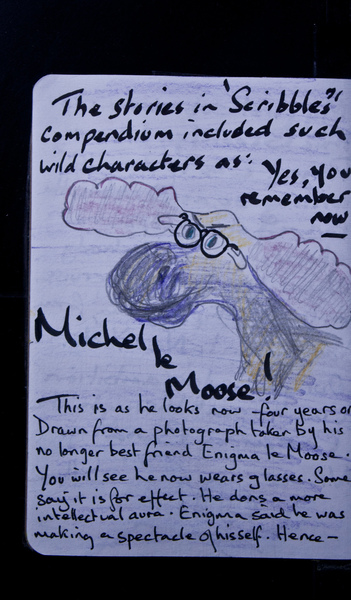 The stories in 'Scribbles'
compendium included such
wild characters as:
Yes, you
remember
now
Michel
le
Moose!
This is as he looks now - four years on
Drawn from a photograph taken by his
no longer best friend Enigma le Moose.
You will see he now wears glasses. Some
say it is for effect. He dons a more
intellectual aura. Enigma said he was
making a spectacle of hisself. Hence -